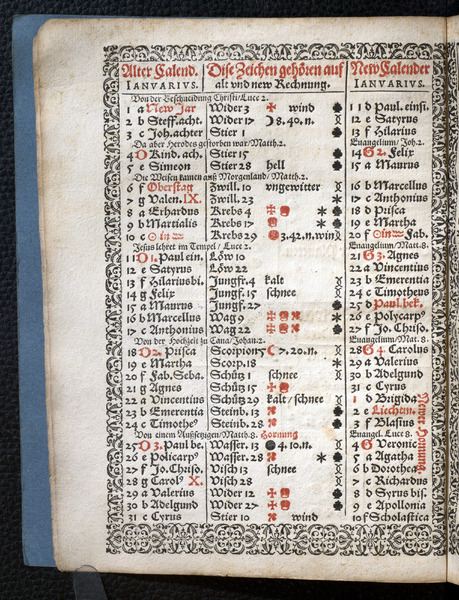 Alter Calend. Dise Zeichen gehören auf New Calender
IANVARIVS. alt vnd new Rechnung. IANVARIVS.
Von der Beschneidung Christi/Luce 2.
1 a New Jar Wider 3 wind 11 d Paul. einsi.
2 b Steff.acht. Wider 17 8.40.n. 12 e Satyrus
3 c Joh.achter Stier 1 13 f Hilarius
Da aber Herodes gestorben war/Matth.2. Euangelium/Joh.2.
4 D Kind.ach. Stier 15 14 G 2. Felix
5 e Simeon Stier 28 hell 15 a Maurus
Die Weisen kamen auß Morgenland/Matth.2.
6 f Oberstag Zwill.10 vngewitter 16 b Marcellus
7 g Valen.IX. Zwill.23 17 c Anthonius
8 a Erhardus Krebs 4 18 d Prisca
9 b Martialis Krebs 17 19 e Martha
10 c in Krebs 29 3.42.n.win 20 f in Fab.
Jesus lehret im Tempel/Luce 2. Euangelium/Matt.8.
11 D 1. Paul ein. Löw 10 21 G 3. Agnes
12 e Satyrus Löw 22 22 a Vincentius
13 f Hilariusbi. Jungfr.4 kalt 23 b Emerentia
14 g Felix Jungf.15 schnee 24 c Timotheus
15 a Maurus Jungf.27 25 d Paul.bek.
16 b Marcellus Wag 9 26 e Policarpꝰ
17 c Anthonius Wag 22 27 f Jo. Chriso.
Von der Hochzeit zu Cana/Johan.2. Euangelium/Mat.8.
18 D 2. Prisca Scorpion 5 7.20.n. 28 G 4 Carolus
19 e Martha Scorp.18 29 a Valerius
20 f Fab.Seba. Schütz 1 schnee 30 b Adelgund
21 g Agnes Schütz 15 31 c Cyrus
22 a Vincentius Schütz 29 kalt/schnee 1 d Brigida
23 b Emerentia Steinb.13 2 e Liechtm.
24 c Timotheꝰ Steinb.28 3 f Blasius
Von einem Außsetzigen/Matth.8. Hornung Euangel.Luc.8.
25 D 3. Paul be. Wasser.13 4.10.n. 4 G Veronic
26 e Policarpꝰ Wasser.28 5 a Agatha
27 f Jo.Chriso. Visch 13 schnee 6 b Dorothea
28 g Carolꝰ X. Visch 28 7 c Richardus
29 a Valerius Wider 12 8 d Syrus bis.
30 b Adelgund Wider 27 9 e Apollonia
31 c Cyrus Stier 10 wind 10 f Scholastica
Newer Hornung